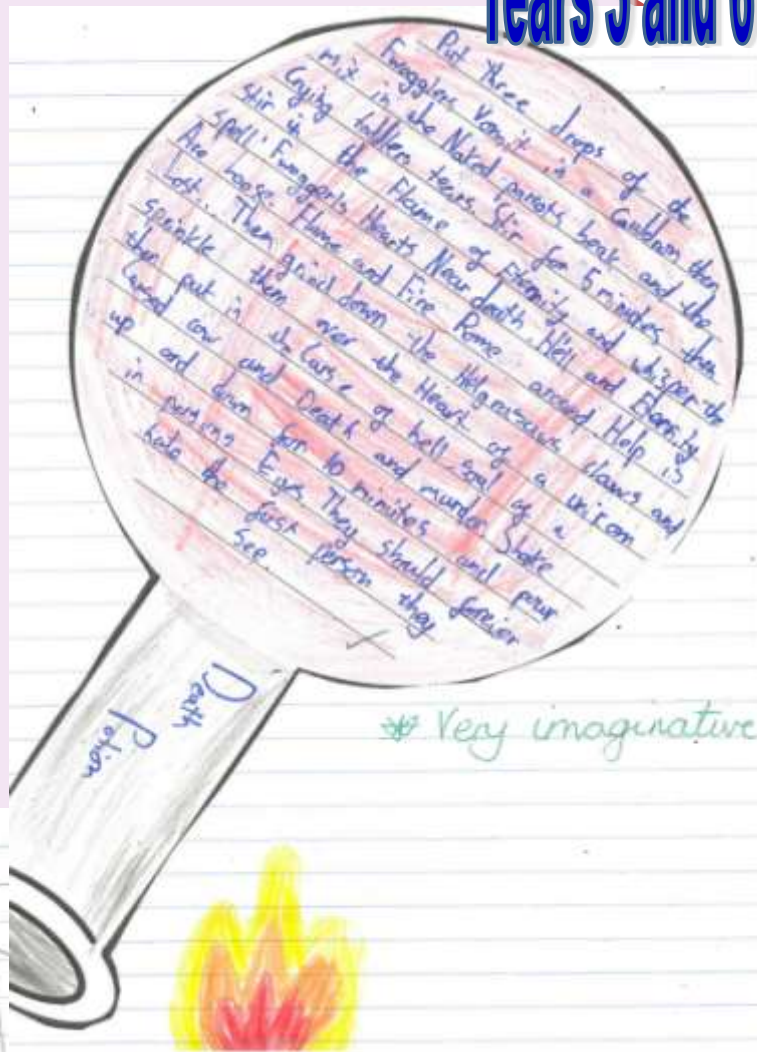 Years 5 and 6
Put three drops of the
Fwagglers Vomit in a Cauldron then
mix in the Naked parrots beak and the
Crying tears. Stir for 5 minutes then
Stir in the Flame of Eternity and whisper the
spell: Hearts Near death. Hell and Eternity
Are loose Flame and Fire Rome around Help is
Lost.. Then grind down the claws and
sprinkle them over the Heart of a unicorn
then put in the Curse of hell soul of a
Cursed cow and Death and murder Shake
up and down for 10 minutes and pour
in persons Eyes They should forever
hate the first person they
See.
Death
Potion
Very imaginative